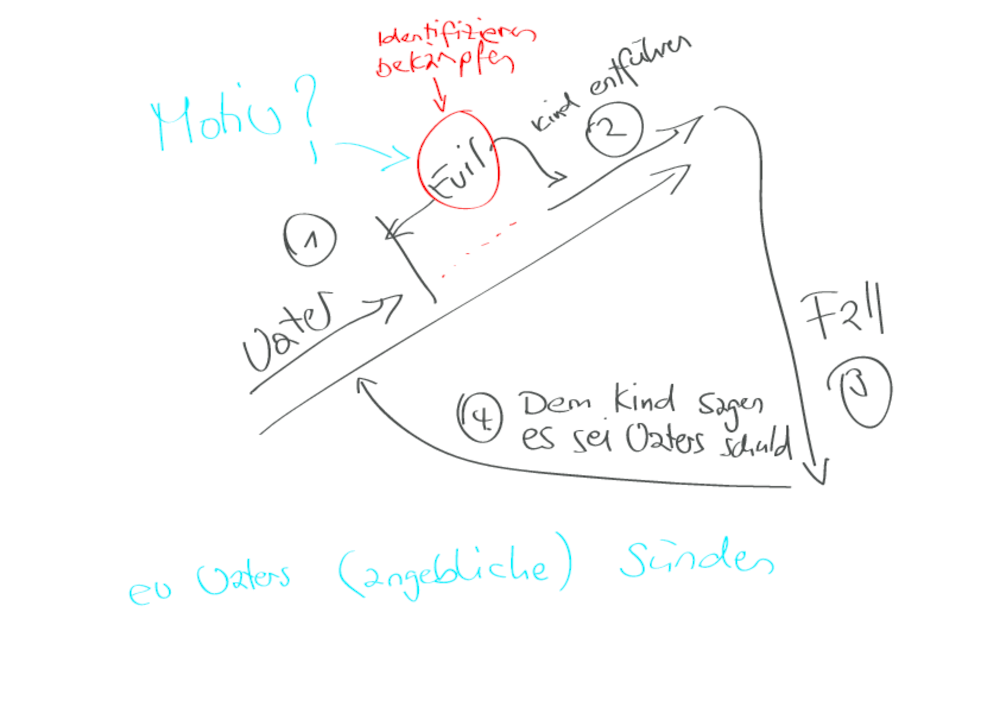 Identifizieren
bekämpfen
Motiv?
Kind entführen
2
Evil
1
Vater
Fall
3
4 Dem Kind sagen
es sei Vaters schuld
ev Vaters (angebliche) Sünden